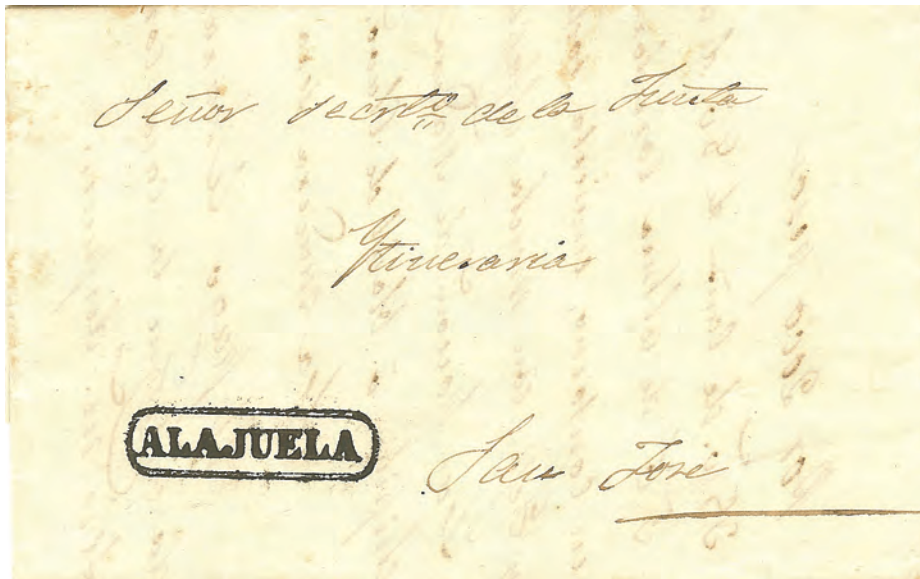 Señor Secrt.º de la Junta
Ytineraria
ALAJUELA
San José